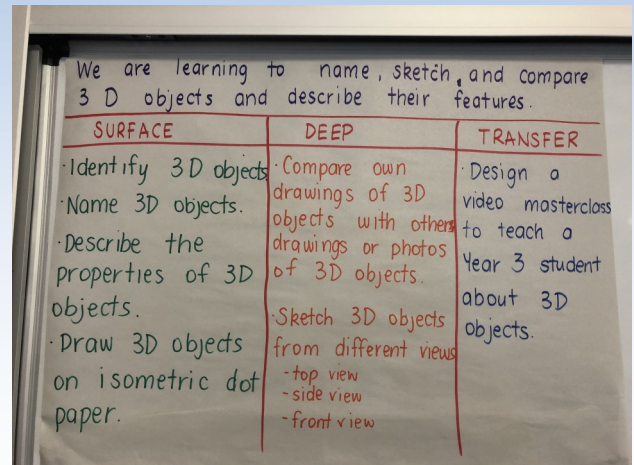 We are learning to name, sketch, and compare
3 D objects and describe their features.
SURFACE
·Identify 3D objects
·Name 3D objects.
·Describe the
properties of 3D
objects.
·Draw 3D objects
on isometric dot
paper.
DEEP
·Compare own
drawings of 3D
objects with others
drawings or photos
of 3D objects.
·Sketch 3D objects
from different views
-top view
-side view
-front view
TRANSFER
·Design a
video masterclass
to teach a
Year 3 student
about 3D
objects.